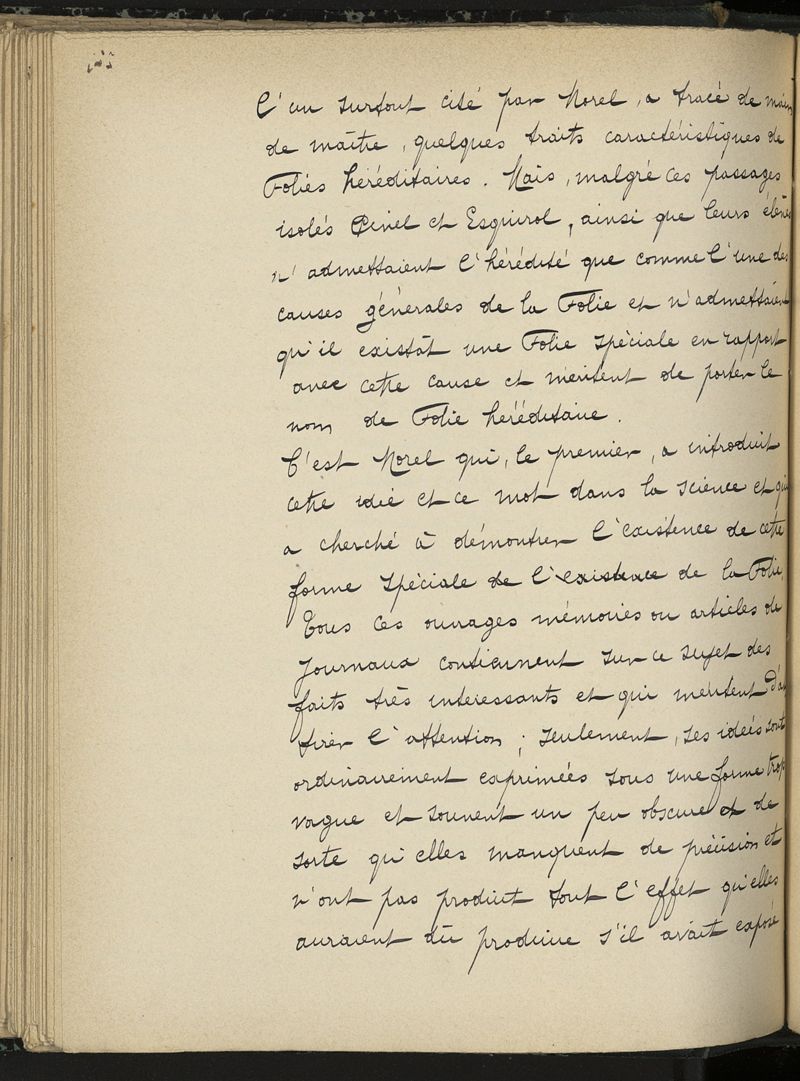 L'un surtout cité par Morel, a tracé de main
de maître, quelques traits caractéristiques de
Folies héréditaires. Mais, malgré ces passages
isolés Pinel et Esquirol, ainsi que leurs élèves
n'admettaient l'hérédité que comme l'une des
causes générales de la Folie et n'admettaient
qu'il existât une Folie spéciale en rapport
avec cette cause et méritent de porter le
nom de Folie héréditaire.
C'est Morel qui, le premier, a introduit
cette idée et ce mot dans la science et qui
a cherché à démontrer l'existence de cette
forme spéciale de l'existence de la Folie.
Tous ces ouvrages mémoires ou articles de
Journaux contiennent sur ce sujet des
faits très intéressants et qui méritent d'at
tirer l'attention ; seulement, ses idées sont
ordinairement exprimées sous une forme trop
vague et souvent un peu obscure et de
sorte qu'elles manquent de précision et
n'ont pas produit tout l'effet qu'elles
auraient dû produire s'il avait exposé